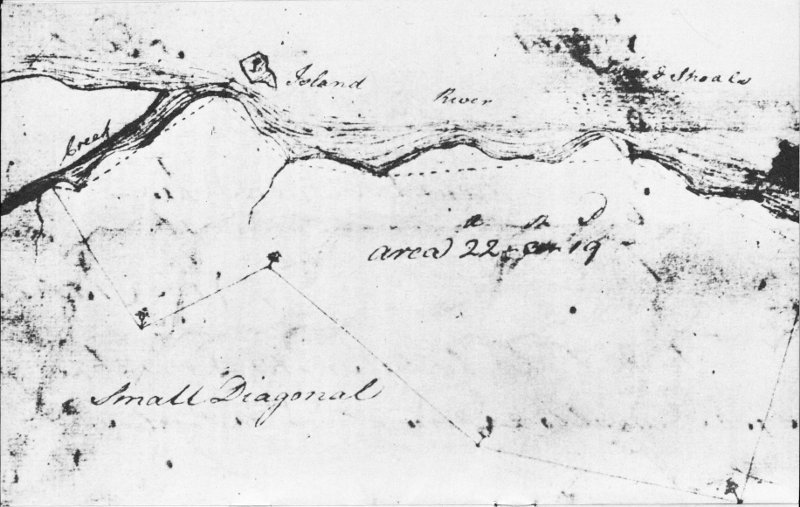 Island
River
& Shoals
Creek
A R P
area 22 - 0 - 19
Small Diagonal